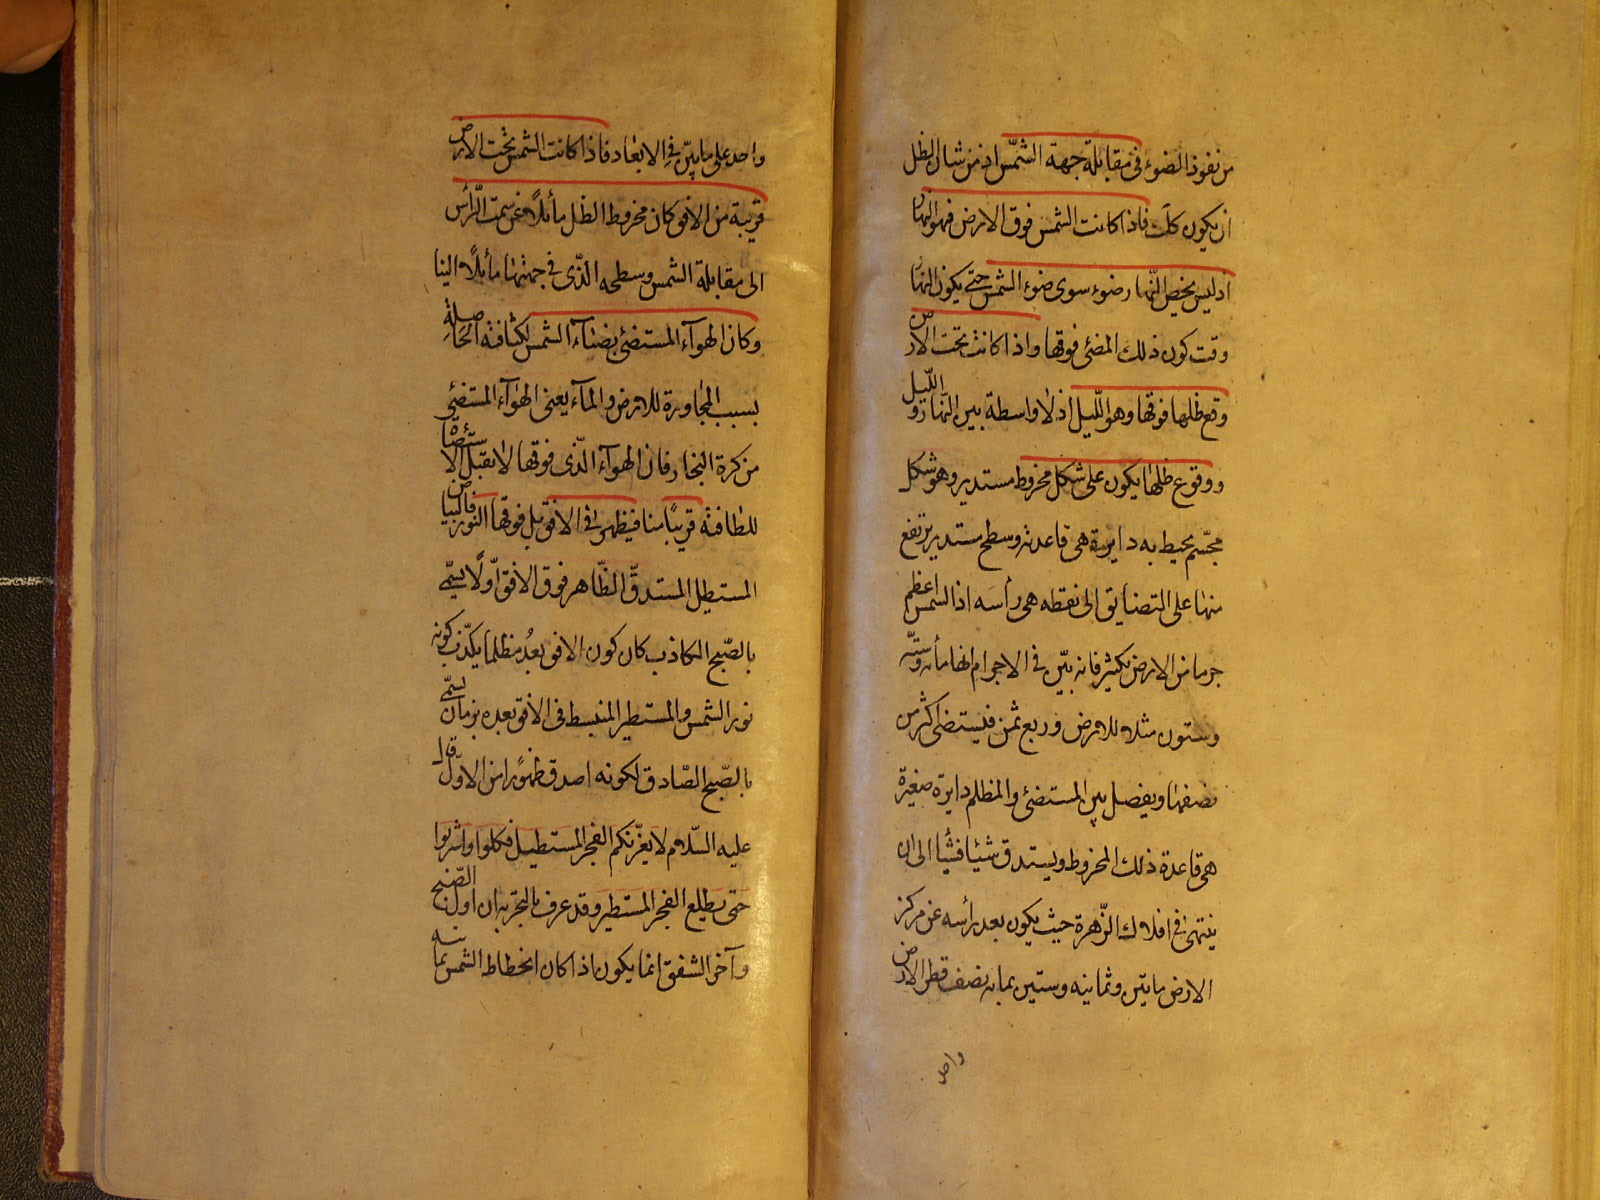 من نفوذ الضوء فى مقابلة جهة الشمس اذ من شان الظل
ان يكون كذلك فاذا كانت الشمس فوق الارض فهو النهار
اذ ليس يخص النهار ضوء سوى ضوء الشمس حتى يكون النهار
وقت كون ذلك المضئ فوقها واذا كانت تحت الارض
وقع ظلها فوقها وهو الليل اذ لا واسطة بين النهار والليل
ووقوع ظلها يكون على شكل مخروط مستدير وهو شكل
مجسم يحيط به دايرة هى قاعدته وسطح مستدير يرتفع
منها على التضايق الى نقطه هى رأسه اذ الشمس اعظم
جرما من الارض بكثير فانه بيّن فى الاجرام انها مأته وستّه
وستون مثلا للارض وربع ثمن فيستضئ اكثر من
نصفها ويفصل بين المستضئ والمظلم دايرة صغيرة
هى قاعدة ذلك المخروط ويستدق شيئا فشيئا الى ان
ينتهى فى افلاك الزّهرة حيث يكون بعد رأسه عن مركز
الارض مايتين وثمانيه وستين بما به نصف قطر الارض
واحد
واحد على ما بيّن فى الابعاد فاذا كانت الشمس تحت الارض
قريبة من الافق كان مخروط الظل مأيلاً عن سمت الرّأس
الى مقابلة الشمس وسطحه الذّى فى جهتها مأيلاً الينا
وكان الهوآء المستضئ بضيآء الشمس لكثافته الحاصلة
بسبب المجاورة للارض والمآء يعنى الهوآء المستضئ
من كرة البخار فان الهوآء الذّى فوقها لا يقبل الاستضأ
للطافته قريبًا منا فيظهر فى الافق بل فوقها النور فالبياض
المستطيل المستدقّ الظّاهر فوق الافق اوّلًا يسمّى
بالصّبح الكاذب كان كون الافق بعدُ مظلما يكذّب كونه
نور الشمس والمستطير المنبسط فى الافق بعده بزمان يسمّى
بالصّبح الصّادق لكونه اصدق ظهورًا من الاوّل قال
عليه السّلام لا يغرّنكم الفجر المستطيل فكلوا واشربوا
حتى يطلع الفجر المستطير وقد عرف بالتجربه ان اول الصّبح
وآخر الشفق انما يكون اذا كان انحطاط الشمس ثمانيه